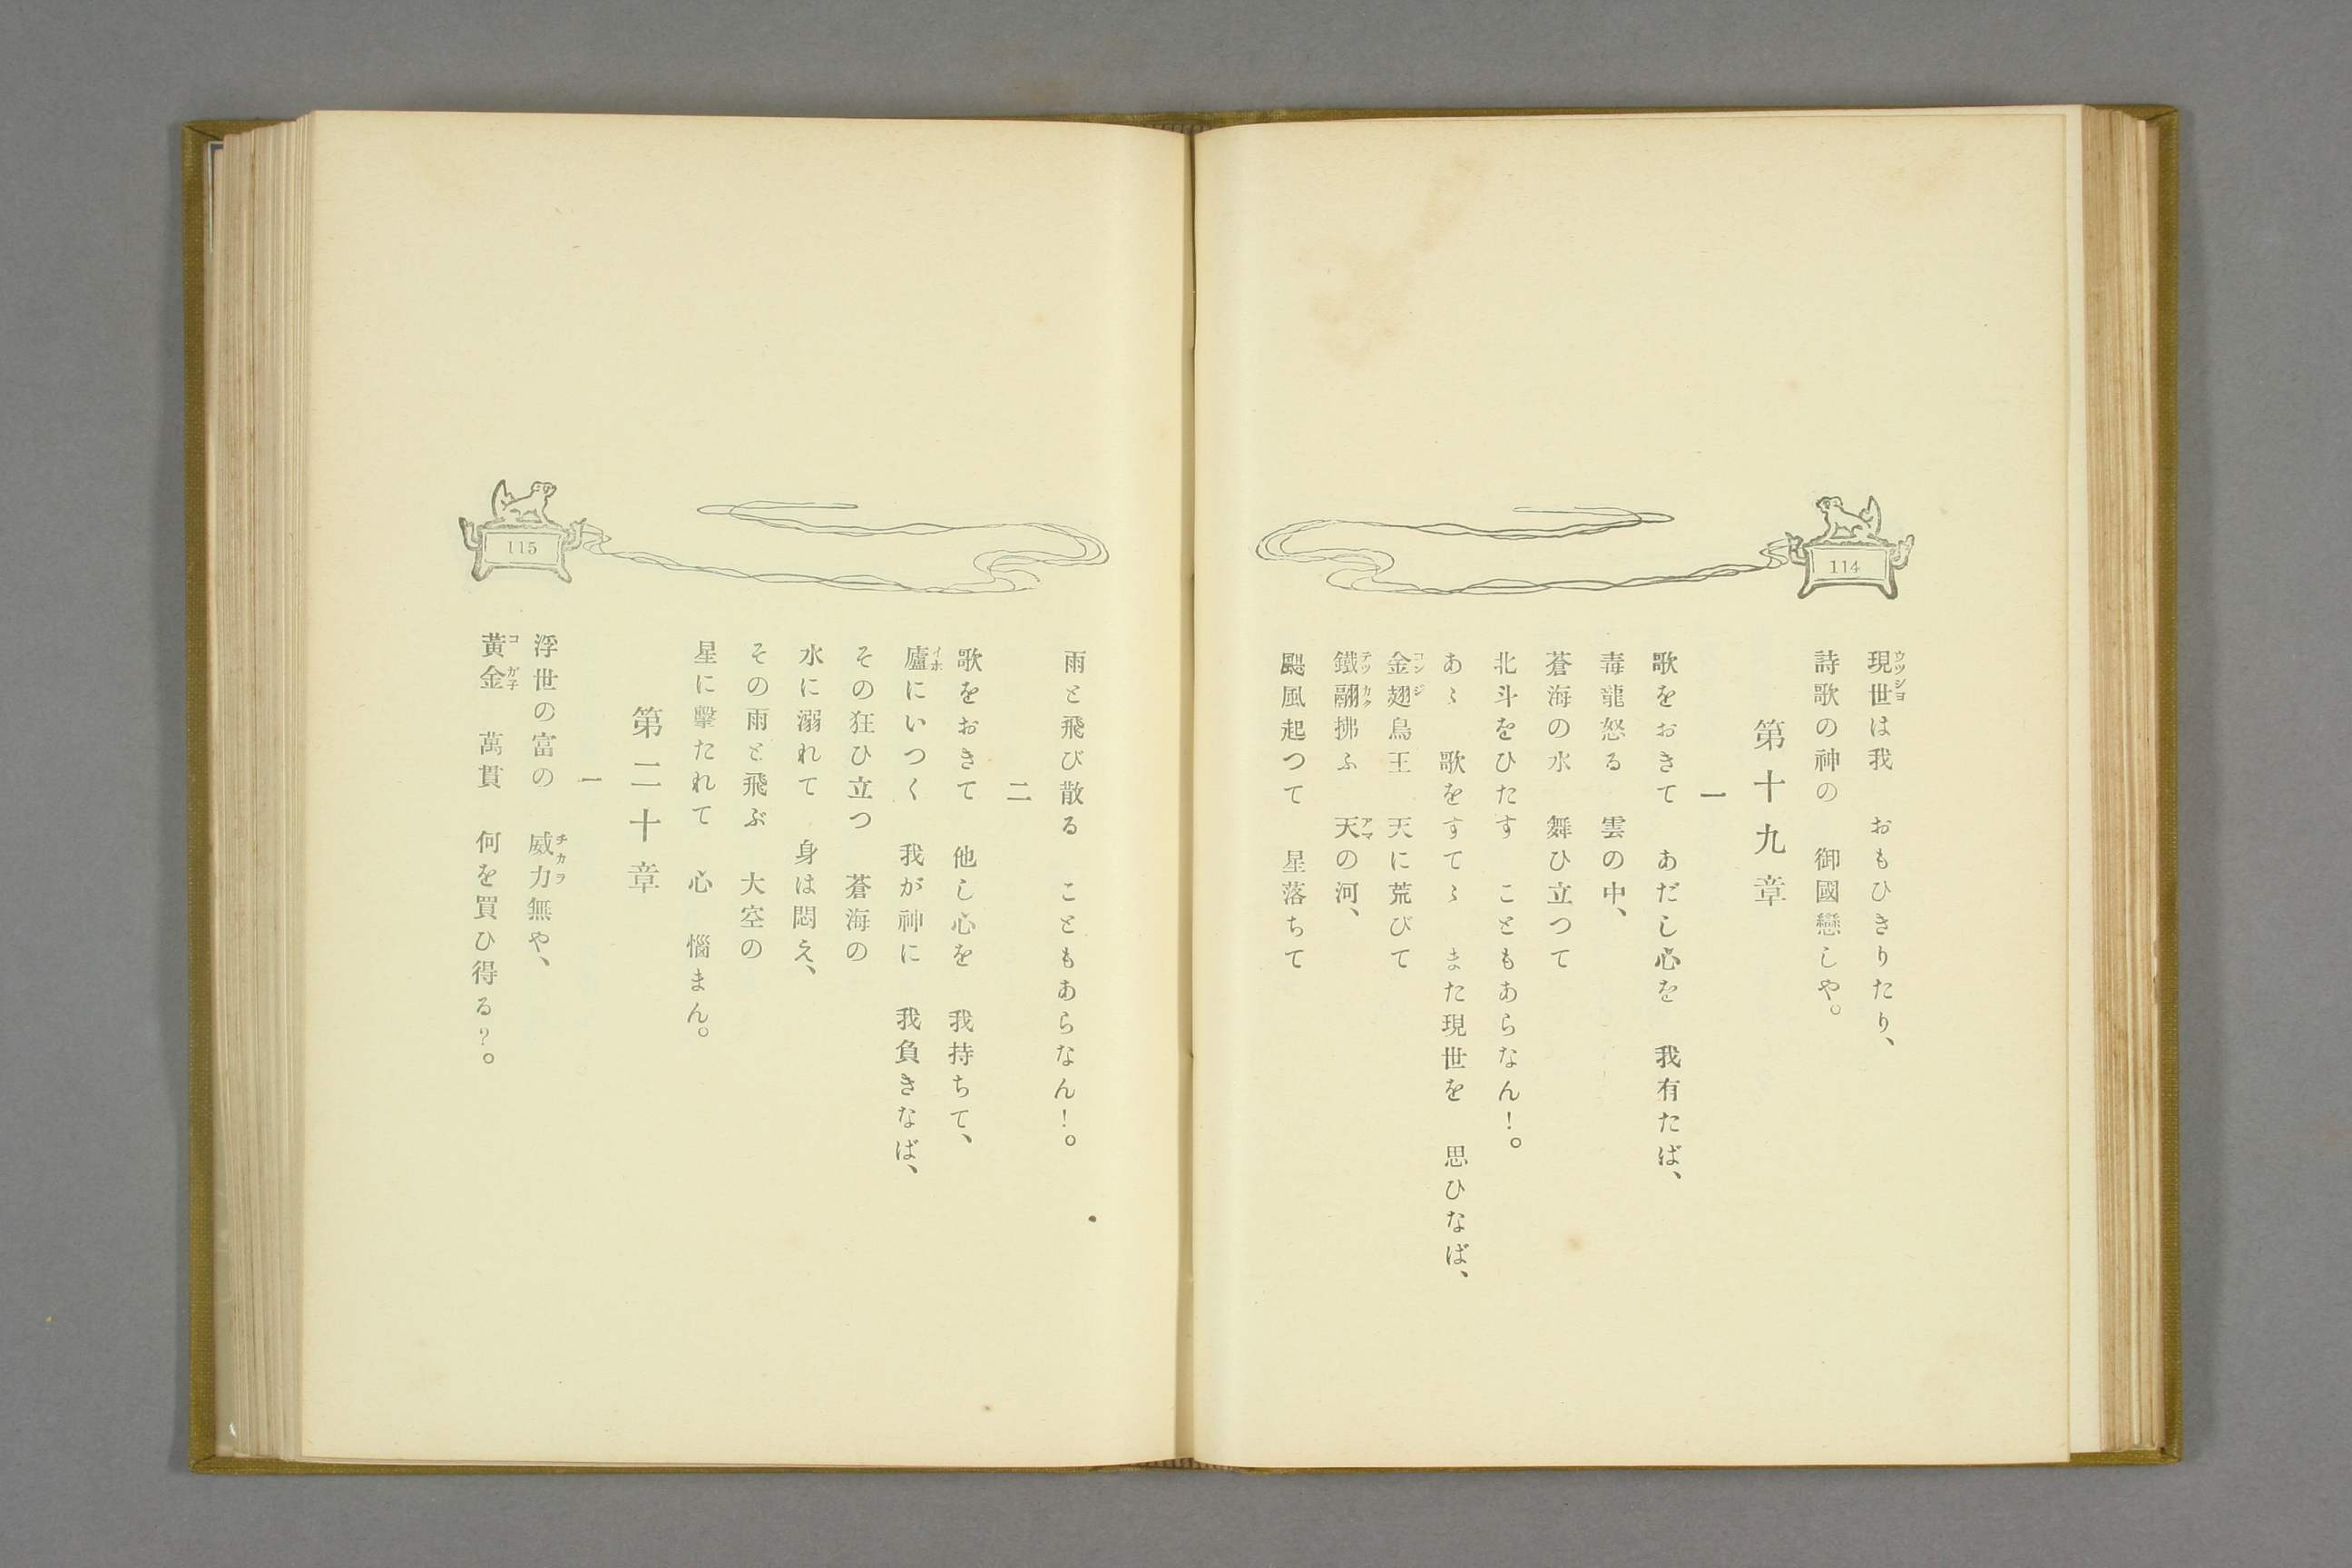 114
現世は我　おもひきりたり、
ウツシヨ
詩歌の神の　御國戀しや。
第十九章
一
歌をおきて　あだし心を　我有たば、
毒龍怒る　雲の中、
蒼海の水　舞ひ立つて
北斗をひたす　こともあらなん！。
あゝ　歌をすてゝ　また現世を　思ひなば、
金翅鳥王　天に荒びて
コンジ
鐵翮拂ふ　天の河、
テツカク　アマ
颶風起つて　星落ちて
115
雨と飛び散る　こともあらなん！。
二
歌をおきて　他し心を　我持ちて、
廬にいつく　我が神に　我負きなば、
イホ
その狂ひ立つ　蒼海の
水に溺れて　身は悶え、
その雨と飛ぶ　大空の
星に擊たれて　心　惱まん。
第二十章
一
浮世の富の　威力無や、
チカラ
黃金　萬貫　何を買ひ得る？。
コガ子